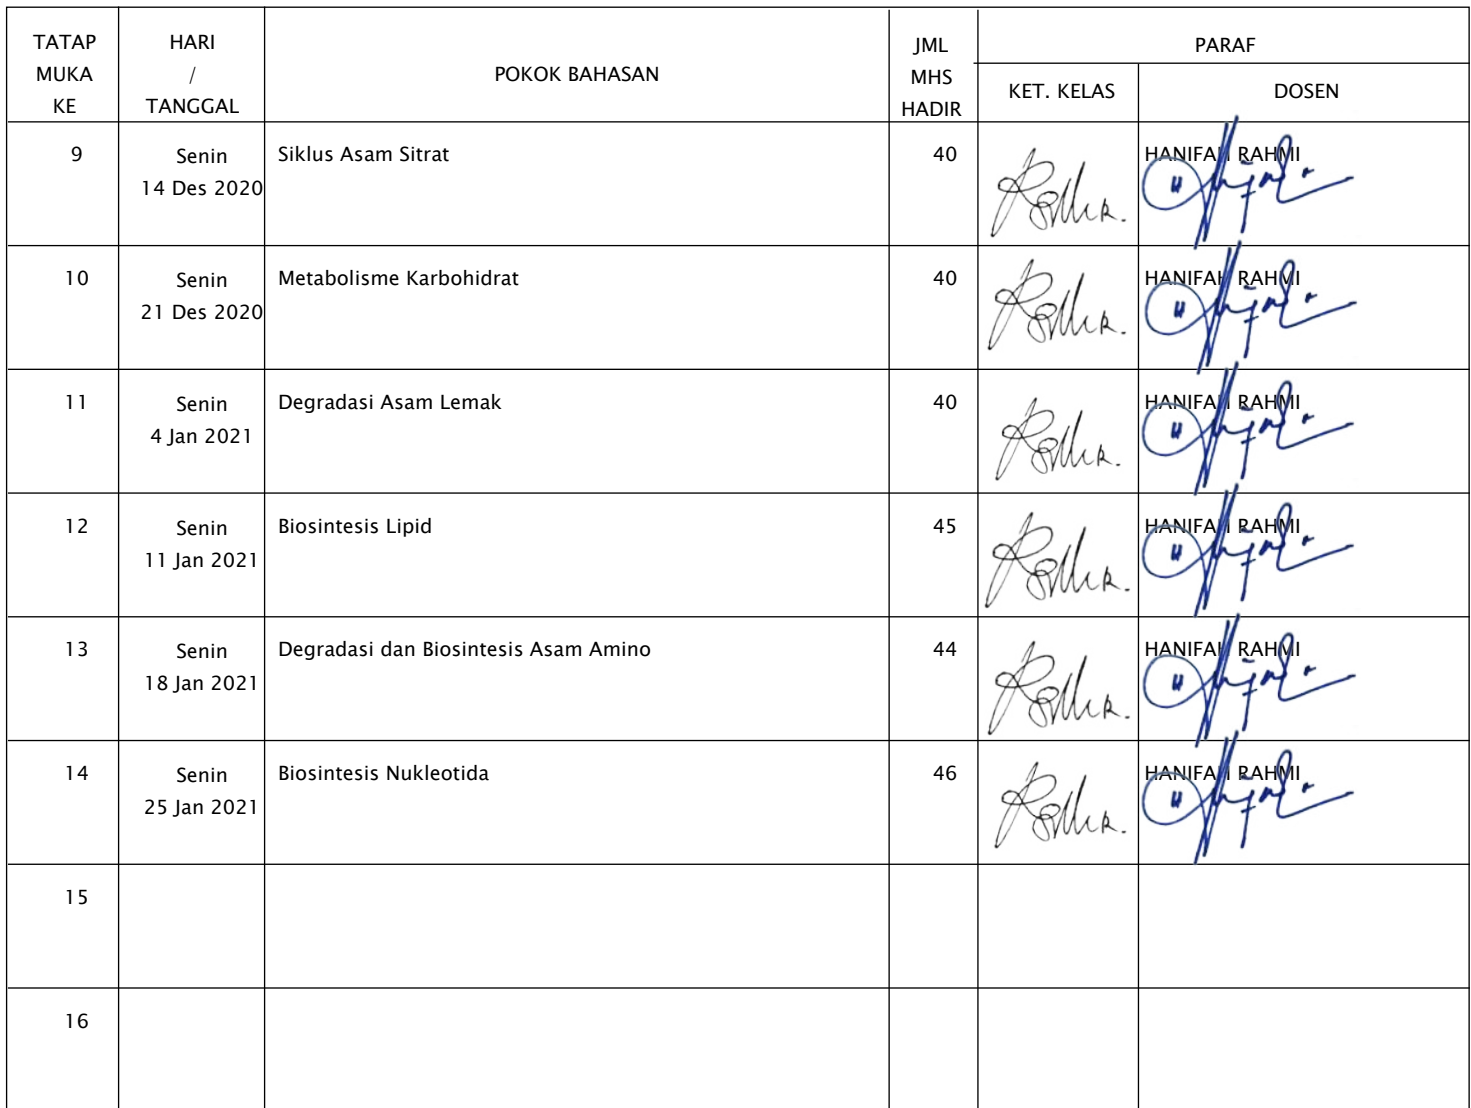 TATAP
MUKA
KE
HARI
/
TANGGAL
POKOK BAHASAN
JML
MHS
HADIR
PARAF
KET. KELAS
DOSEN
9
Senin
14 Des 2020
Siklus Asam Sitrat
40
HANIFAH RAHMI
10
Senin
21 Des 2020
Metabolisme Karbohidrat
40
HANIFAH RAHMI
11
Senin
4 Jan 2021
Degradasi Asam Lemak
40
HANIFAH RAHMI
12
Senin
11 Jan 2021
Biosintesis Lipid
45
HANIFAH RAHMI
13
Senin
18 Jan 2021
Degradasi dan Biosintesis Asam Amino
44
HANIFAH RAHMI
14
Senin
25 Jan 2021
Biosintesis Nukleotida
46
HANIFAH RAHMI
15
16